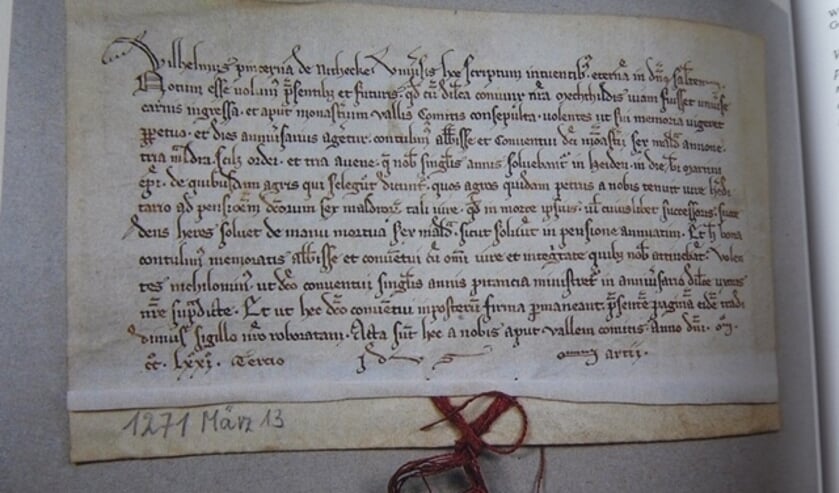 Wilhelmus pīcerna de Nithecke Vniuˀsis hoc scriptum intuentibꝰ eternā in dn̄o salt̄em
Notum esse volumꝰ p̄sentibꝫ et futuris · qđ cū dil̄ca coniunx nr̄a Mechthildis viam fuisset vniuˀse
carnis ingressa · et aput monast̄ium vallis Comitis consepulta · volentes ut sui memoria vigeret
ꝑpetuo · et dies anniuˀsarius agetur · contulimꝰ abb̄isse et Conventui dc̄i mōast̄ii sex mald̄ annone ·
tria mald̄ra scil̄z ordei · et tria auene · q̄ nob̄ singl̄is annis soluebant̄ in heiden in die b̄i Martini
ep̄i · de quibusdam agris qui selegut dicunt̄ · quos agros quidam petrus a nobis tenuit iure her̄di
tario ad pensiōem dc̄orum sex maldrorū tali iure · qđ in morte ipsius · ul̄ cuiuslibet successoris · succe
dens heres soluet de manu mortua sex mald̄ · sicut soluit in pensione annuatim · Et h̄ bona
contulimꝰ memoratis abb̄isse et conuētui cū om̄i iure et integˀtate quibꝫ nob̄ attinebāt · Volen
tes nichilominꝰ ut dc̄o conuentui singl̄is annis pitancia ministret̄ in anniuˀsario dil̄ce uxoris
nr̄e sup̄dicte · Et ut hec dc̄o conuētui inposterū firma ꝑmaneant p̄sentē paginā eidē tradi
dimus sigillo nr̄o roboratam · Acta sūt hec a nobis aput vallem comitis · Anno dn̄i · M̊ ·
cc̊ · Lxxi̊ · Tercio Idus Martii ·
1271 März 13